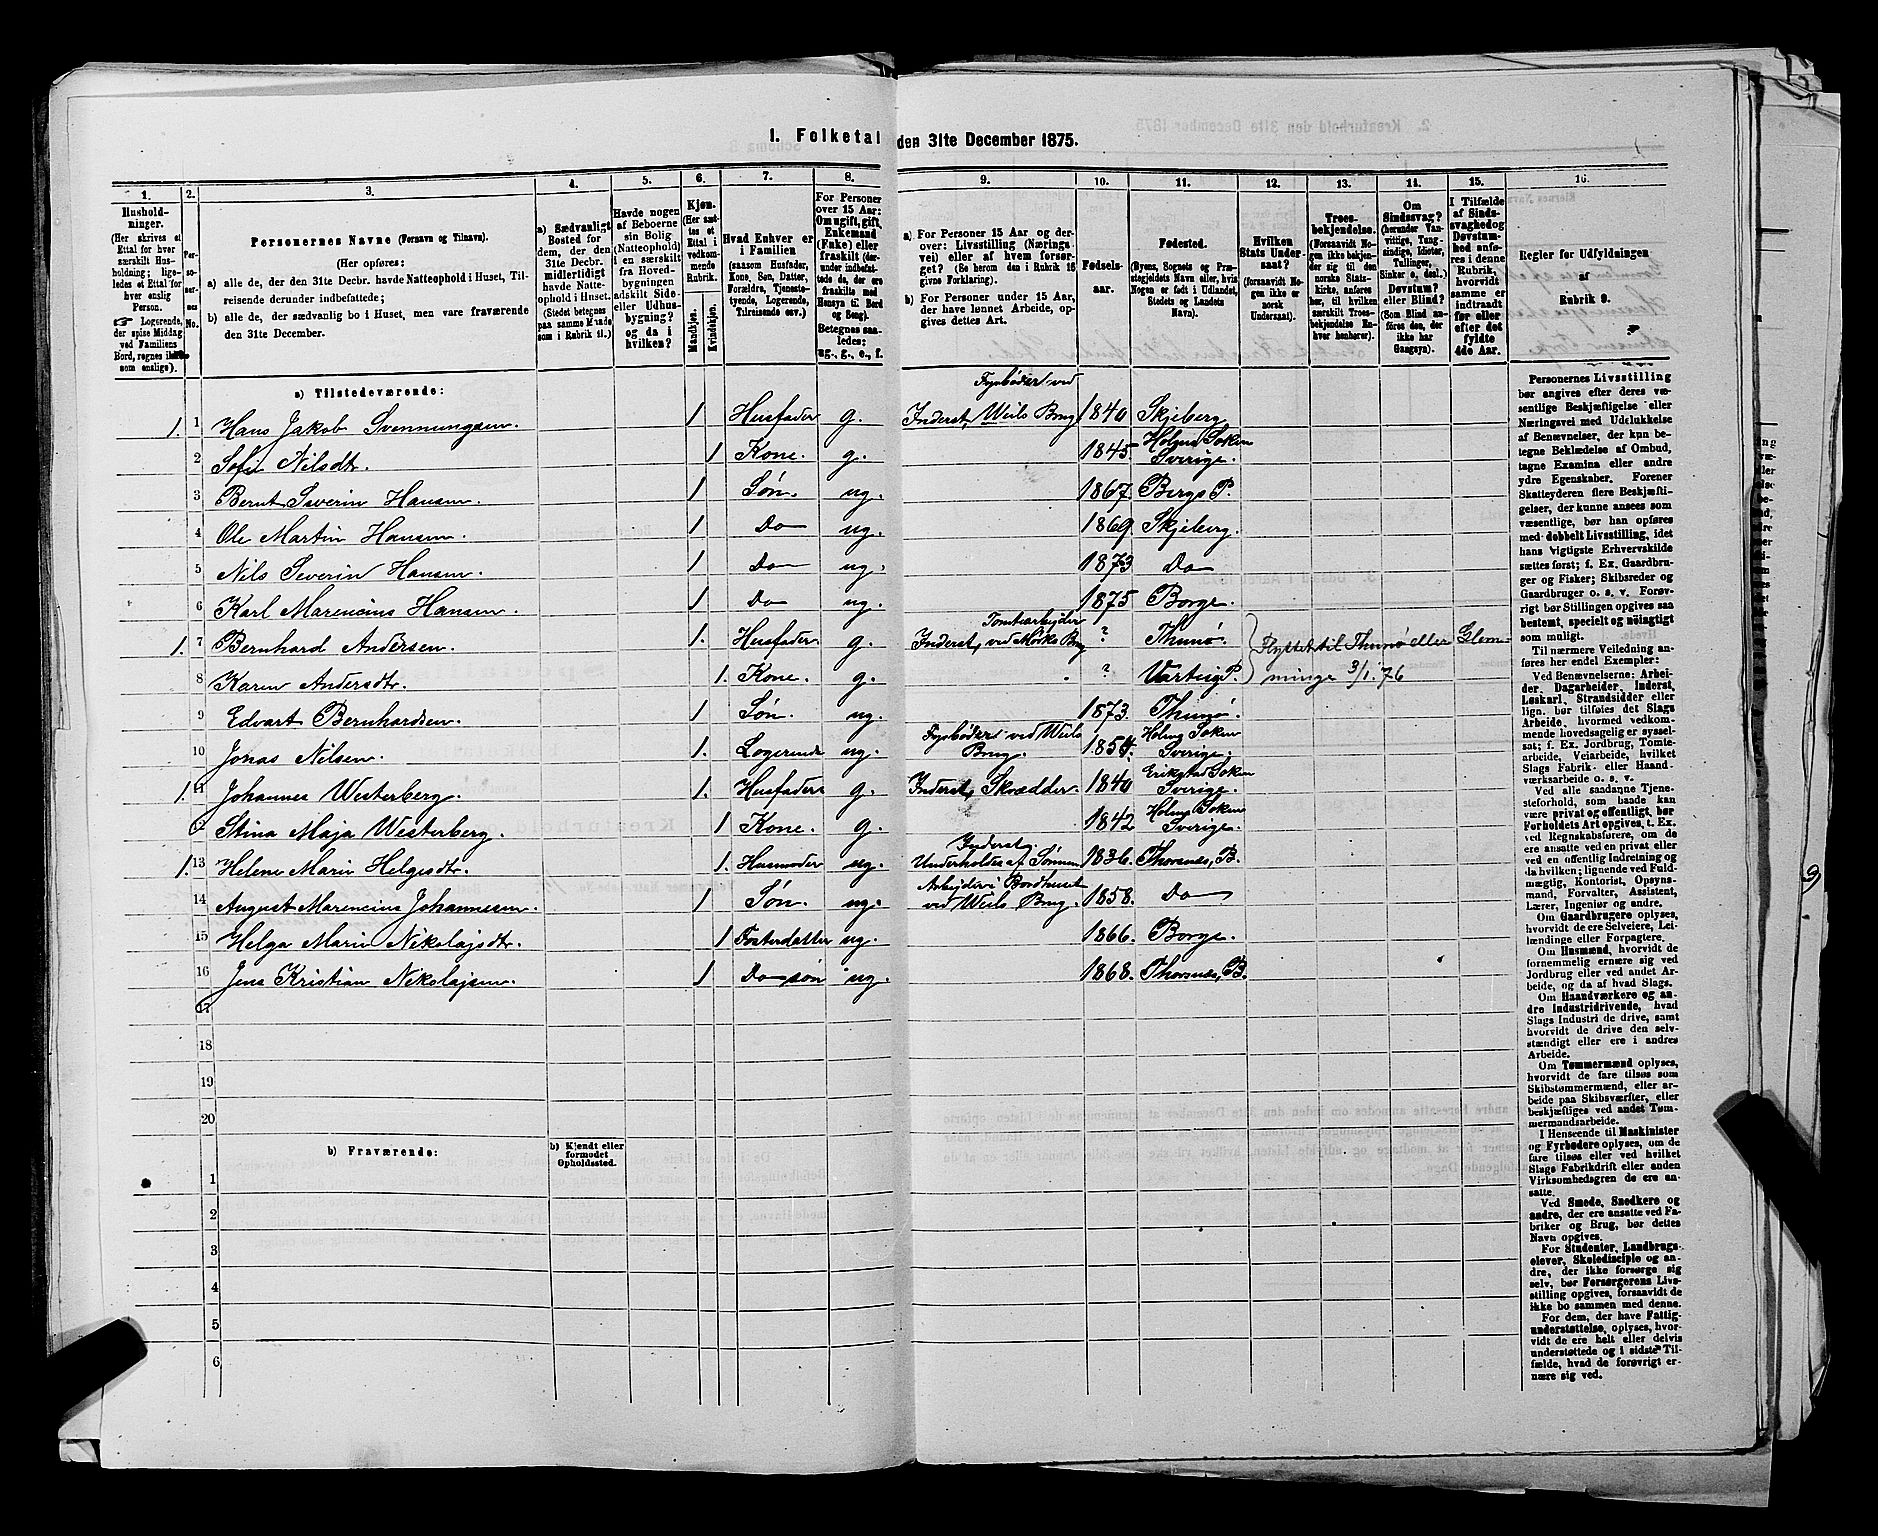 1. Folketal den 31te December 1875.
1. 2. 3. 4. 5. 6. 7. 8. 9. 10. 11. 12. 13. 14. 15. 16.
Hushold-
ninger.
(Her skrives et
Ettal for hver
særskilt Hus-
holdning; lige-
ledes et Ettal for
hver enslig
Person.
☞ Logerende,
der spise Middag
ved Familiens
Bord, regnes ikke
som enslige).
Per-
so-
ner-
nes
No.
Personernes Navne (Fornavn og Tilnavn).
(Her opføres:
a) alle de, der den 31te Decbr. havde Natteophold i Huset, Til-
reisende derunder indbefattede;
b) alle de, der sædvanlig bo i Huset, men vare fraværende
den 31te December.
a) Sædvanligt
Bosted for
dem, der den
31te Decbr.
midlertidigt
havde Natte-
ophold i Huset.
(Stedet betegnes
paa samme Maade
som i Rubrik 11.)
Havde nogen
af Beboerne
sin Bolig
(Natteophold)
i en særskilt
fra Hoved-
bygningen
adskilt Side-
eller Udhus-
bygning?
og da i
hvilken?
Kjøn.
(Her sæt-
tes et
Ettal i
vedkom-
mende
Rubrik.
Mandkjøn.
Kvindekjøn.
Hvad Enhver er
i Familien
(saasom Husfader,
Kone, Søn, Datter,
Forældre, Tjeneste-
tyende, Logerende,
Tilreisende osv.)
For Personer
over 15 Aar:
Om ugift, gift,
Enkemand
(Enke) eller
fraskilt (der-
under indbefat-
tede de, der ere
fraskilte med
Hensyn til Bord
og Seng).
Betegnes saa-
ledes:
ug., g., e., f.
a) For Personer 15 Aar og der-
over: Livsstilling (Nærings
vei) eller af hvem forsør-
get? (Se herom den i Rubrik 16
givne Forklaring).
b) For Personer under 15 Aar,
der have lønnet Arbeide, op-
gives dettes Art.
Fødsels-
aar.
Fødested.
(Byens, Sognets og Præ-
stegjeldets Navn eller, hvis
Nogen er født i Udlandet,
Stedets og Landets
Navn).
Hvilken
Stats Under-
saat?
(forsaavidt No-
gen ikke er
norsk
Undersaat).
Troes-
bekjendelse.
(Forsaavidt No-
gen ikke bekjen-
der sig til den
norske Stats-
kirke, anføres
her, til hvilken
særskilt Troes-
bekjendelse En-
hver henhører).
Om
Sindssvag?
(herunder Van-
vittige, Tung-
sindige, Idioter,
Tullinger,
Sinker o. desl.)
Døvstum?
eller Blind?
(Som Blind an-
føres den, der
ikke har
Gangsyn).
I Tilfælde
af Sinds-
svaghed og
Døvstum-
hed anfø-
res i denne
Rubrik,
hvorvidt
samme er
indtraadt
før eller
efter det
fyldte
4de Aar.
Regler for Udfyldningen
af
Rubrik 9.
a) Tilstedeværende:
1. 1 Hans Jakob Svenningsen. 1 Husfader g. Inderst, Fyrbøder ved Weils Brug 1840 Skjeberg.
2 Sofie Nilsdtr. 1 Kone. g. 1845. Holms Soken Sverige.
3 Bernt Severin Hansen. 1 Søn. ug. 1867. Bergs P.
4 Ole Martin Hansen. 1 Do ug. 1869. Skjeberg.
5 Nils Severin Hansen. 1 Do ug. 1873 Do
6 Karl Marencius Hansen 1 Do ug. 1875 Borge.
1. 7 Bernhard Andersen. 1. Husfader g. Inderst, Tomtearbeider ved Brug ? Thunø. Flyttet til Thunø eller Glem-
8 Karen Andersdtr. 1. Kone. g. ? Varteig P. minge 3/1. 76
9 Edvart Bernhardsen. 1 Søn. ug. 1873. Thunø.
10 Jonas Nilsen. 1. Logerende ug. Fyrbøder ved Weils Brug. Holms Soken Sverige.
1. 11 Johannes Westerberg. 1. Husfader g. Inderst, Skrædder. 1840 Erikstad Soken Sverige.
12 Stina Maja Westerberg. 1 Kone. g. 1842 Holms Soken Sverige.
1. 13 Helene Marie Helgesdtr. 1. Husmoder ug. Inderst, Underholdes af Sønnen 1836. Thorsnes, B.
14 August Marencius Johannesen. 1 Søn. ug. Arbeider i Bordhuset ved Weils Brug. 1858. Do
15 Helga Marie Nikolajsdtr. 1 Fosterdatter ug. 1866. Borge.
16 Jens Kristian Nikolajsen. 1 Do søn ug. 1868. Thorsnes, B.
17
18
19
20
b) Fraværende:
b) Kjendt eller
formodet
Opholdssted.
1
2
3
4
5
6
Personernes Livsstilling
bør angives efter deres væ-
sentlige Beskjæftigelse eller
Næringsvei med Udelukkelse
af Benævnelser, der kun be-
tegne Beklædelse af Ombud,
tagne Examina eller andre
ydre Egenskaber. Forener
Skatteyderen flere Beskjæfti-
gelser, der kunne ansees som
væsentlige, bør han opføres
med dobbelt Livsstilling, idet
hans vigtigste Erhvervskilde
sættes først; f. Ex. Gaardbru-
ger og Fisker; Skibsreder og
Gaardbruger o. s. v. Forøv-
rigt bør Stillingen opgives saa
bestemt, specielt og nøiagtigt
som muligt.
Til nærmere Veiledning an-
føres her endel Exempler:
Ved Benævnelserne: Arbei-
der, Dagarbeider, Inderst,
Løskarl, Strandsidder eller
lign. bør tilføies det Slags
Arbeide, hvormed vedkom-
mende hovedsagelig er syssel-
sat; f. Ex. Jordbrug, Tomte-
arbeide, Veiarbeide, hvilket
Slags Fabrik- eller Haand-
værksarbeide o. s. v.
Ved alle saadanne Tjene-
steforhold, som baade kan
være privat og offentligt, bør
Forholdets Art opgives, t. Ex.
ved Regnskabsførere, om de
ere ansatte ved en privat eller
ved en offentlig Indretning og
da hvilken; lignende ved Fuld-
mægtig, Kontorist, Opsyns-
mand, Forvalter, Assistent,
Lærer, Ingeniør og andre.
Om Gaardbrugere oplyses,
hvorvidt de ere Selveiere, Lei-
lændinge eller Forpagtere.
Om Husmænd, hvorvidt de
fornemmelig ernære sig ved
Jordbrug eller ved andet Ar-
beide, og da af hvad Slags.
Om Haandværkere og an-
dre Industridrivende, hvad
Slags Industri de drive, samt
hvorvidt de drive den selv-
stændigt eller ere i andres
Arbeide.
Om Tømmermænd oplyses,
hvorvidt de fare tilsøs som
Skibstømmermænd, eller ar-
beide paa Skibsværfter, eller
beskjæftiges ved andet Tøm-
mermandsarbeide.
I Henseende til Maskinister
og Fyrbødere oplyses, om de
fare tilsøs eller ved hvilket
Slags Fabrikdrift eller anden
Virksomhedsgren de ere an-
satte.
Ved Smede, Snedkere og
andre, der ere ansatte ved Fa-
briker og Brug, bør dettes
Navn opgives.
For Studenter, Landbrugs-
elever, Skoledisciple og an-
dre, der ikke forsørge sig
selv, bør Forsørgerens Livs-
stilling opgives, forsaavidt de
ikke bo sammen med denne.
For dem, der have Fattig-
understøttelse, oplyses, hvor-
vidt de ere helt eller delvis
understøttede og i sidste Til-
fælde, hvad de forøvrigt er-
nære sig ved.